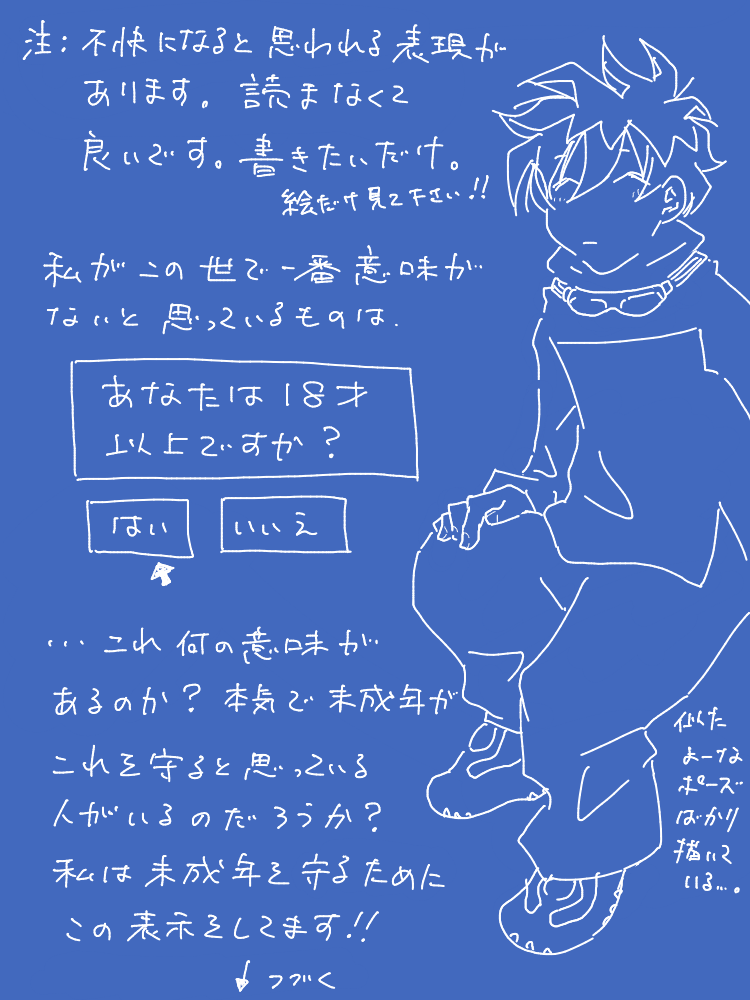 注:不快になると思われる表現が
あります。読まなくて
良いです。書きたいだけ。
絵だけ見て下さい!!
私がこの世で一番意味が
ないと思っているものは.
あなたは18才
以上ですか?
はい いいえ
…これ何の意味が
あるのか?本気で未成年が
これを守ると思っている
人がいるのだろうか?
私は未成年を守るために
この表示をしてます!!
↓つづく
似た
よーな
ポーズ
ばかり
描いて
いる…。